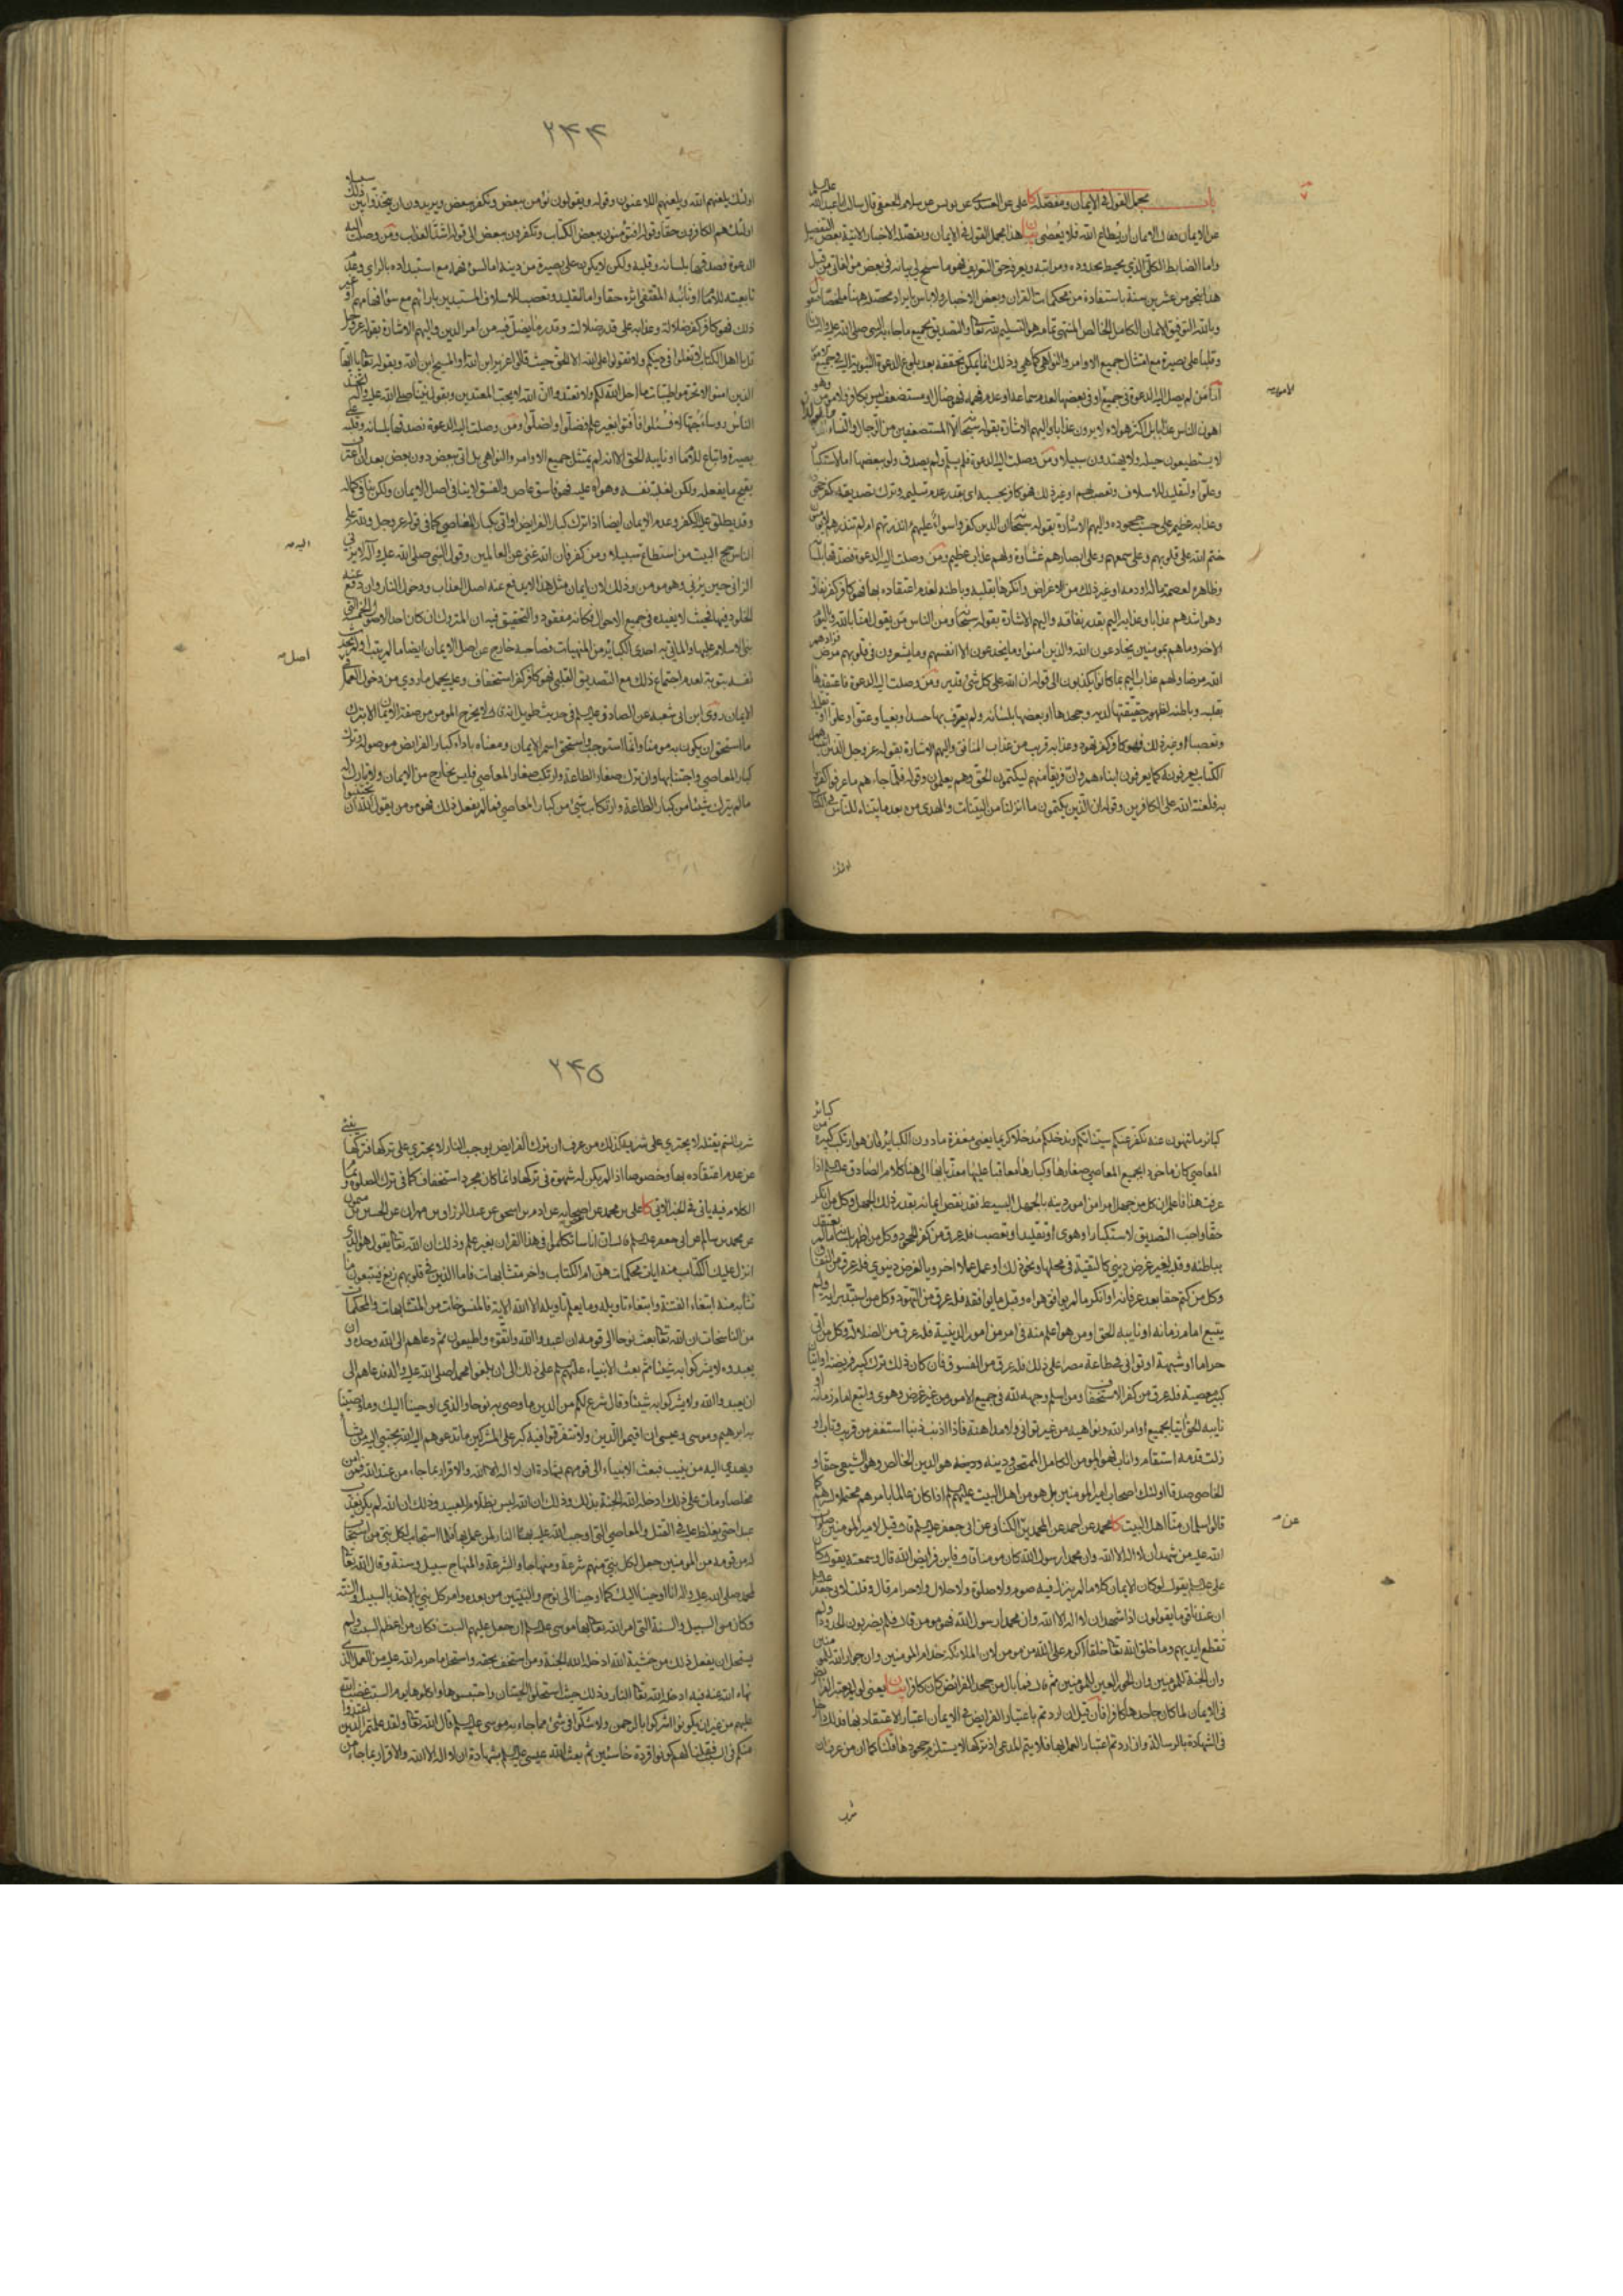 باب مجمل القول في الايمان ومفصله كا على عن العبيدي عن يونس عن سلام الجعفي قال سالت ابا عبدالله عليه السلم
عن الايمان فقال الايمان ان يطاع الله فلا يعصى بيان هذا مجمل القول في الايمان ومفصله الاخبار الاتية بعض التفصيل
واما الضابط الكلي الذي يحيط بحدوده ومراتبه ويعرفه حق التعريف فهو ما سنح لي بيانه في بعض مؤلفاتي من قبل
هذا بنحو من عشرين سنة باستفادة من محكمات القران وبعض الاخبار ولا باس بايراد محصله ههنا ملخصا فنقول
وبالله التوفيق الايمان الكامل الخالص المنتهى تمامه هو التسليم لله تعالى والتصديق بجميع ما جاء به النبي صلى الله عليه واله لسانا
وقلبا على بصيرة مع امتثال جميع الاوامر والنواهي كما هي وذلك انما يمكن تحققه بعد بلوغ الدعوة النبوية اليه في جميع الامور
اما من لم يصل اليه الدعوة في جميع او في بعضها لعدم سماعه او عدم فهمه فهو ضال او مستضعف ليس بكافر ولا مومن وهو
اهون الناس عذابا بل اكثر هولاء لا يرون عذابا واليهم الاشارة بقوله سبحانه الا المستضعفين من الرجال والنساء والولدان
لا يستطيعون حيلة ولا يهتدون سبيلا ومن وصلت اليه الدعوة فلم يسلم ولم يصدق ولو ببعضها اما لاستكبار
وعلو او لتقليد للاسلاف وتعصب لهم او غير ذلك فهو كافر بحسبه اي بقدر عدم تسليمه وترك تصديقه كفر جحود
وعذابه عظيم على حسب جحوده واليهم الاشارة بقوله سبحانه ان الذين كفروا سواء عليهم ءانذرتهم ام لم تنذرهم لا يؤمنون
ختم الله على قلوبهم وعلى سمعهم وعلى ابصارهم غشاوة ولهم عذاب عظيم ومن وصلت اليه الدعوة فصدقها بلسانه
وظاهره لعصمة ماله او دمه او غير ذلك من الاعراض وانكرها بقلبه وباطنه لعدم اعتقاده بها فهو كافر كفر نفاق
وهو اشدهم عذابا وعذابه اليم بقدر نفاقه واليهم الاشارة بقوله سبحانه ومن الناس من يقول امنا بالله وباليوم
الاخر وما هم بمومنين يخادعون الله والذين امنوا وما يخدعون الا انفسهم وما يشعرون في قلوبهم مرض فزادهم
الله مرضا ولهم عذاب اليم بما كانوا يكذبون الى قوله ان الله على كل شئ قدير ومن وصلت اليه الدعوة فاعتقدها
بقلبه وباطنه لظهور حقيقتها لديه وجحدها او بعضها بلسانه ولم يعترف بها حسدا وبغيا وعتوا وعلوا او تقليدا
وتعصبا او غير ذلك فهو كافر كفر تهود وعذابه قريب من عذاب المنافق واليهم الاشارة بقوله عز وجل الذين اتيناهم
الكتاب يعرفونه كما يعرفون ابناءهم وان فريقا منهم ليكتمون الحق وهم يعلمون وقوله فلما جاءهم ما عرفوا كفروا
به فلعنة الله على الكافرين وقوله ان الذين يكتمون ما انزلنا من البينات والهدى من بعد ما بيناه للناس في الكتاب
اولئك
٢٤٤
اولئك يلعنهم الله ويلعنهم اللاعنون وقوله ويقولون نؤمن ببعض ونكفر ببعض ويريدون ان يتخذوا بين ذلك سبيلا
اولئك هم الكافرون حقا وقوله افتؤمنون ببعض الكتاب وتكفرون ببعض الى قوله اشد العذاب ومن وصلت اليه
الدعوة فصدقها بلسانه وقلبه ولكن لا يكون على بصيرة من دينه اما لسوء فهمه مع استبداده بالراي وعدم
تابعيته للامام او نائبه المقتفي اثره حقا واما لتقليد وتعصب للاسلاف المستبدين بارائهم مع سوء افهامهم او غير
ذلك فهو كافر كفر ضلالة وعذابه على قدر ضلالته وقدر ما يضل فيه من امر الدين واليهم الاشارة بقوله عز وجل
قل يا اهل الكتاب لا تغلوا في دينكم ولا تقولوا على الله الا الحق حيث قالوا عزير ابن الله والمسيح ابن الله وبقوله تعالى يا ايها
الذين امنوا لا تحرموا طيبات ما احل الله لكم ولا تعتدوا ان الله لا يحب المعتدين وبقول نبينا صلى الله عليه واله اتخذ
الناس روساء جهالا فسئلوا فافتوا بغير علم فضلوا واضلوا ومن وصلت اليه الدعوة فصدقها بلسانه وقلبه على
بصيرة واتباع للامام او نائبه الحق الا انه لم يمتثل جميع الاوامر والنواهي بل اتى ببعض دون بعض بعد ان اعترف
بقبح ما يفعله ولكن لغلبة نفسه وهواه عليه فهو فاسق عاص والفسق لا ينافي اصل الايمان ولكن ينافي كماله
وقد يطلق عليه الكفر وعدم الايمان ايضا اذا ترك كبار الفرايض او اتى بكبار المعاصي كما في قوله عز وجل ولله على
الناس حج البيت من استطاع سبيلا ومن كفر فان الله غني عن العالمين وقول النبي صلى الله عليه واله لا يزني
الزاني حين يزني وهو مومن وذلك لان ايمان مثل هذا لا يدفع عنه اصل العذاب ودخول النار وان دفع عنه
الخلود فيها فحيث لا يفيده في جميع الاحوال فكانه مفقود والتحقيق فيه ان المتروك ان كان احد الاصول الخمسة التي
بني الاسلام عليها او الماتي به احدى الكبائر من المنهيات فصاحبه خارج عن اصل الايمان ايضا ما لم يتب او لم يحدث
نفسه بتوبة لعدم اجتماع ذلك مع التصديق القلبي فهو كافر كفر استخفاف وعليه يحمل ما روي من دخول العمل في
الايمان روى ابن ابي شعبه عن الصادق عليه السلم في حديث طويل انه قال لا يخرج المومن من صفة الايمان الا بترك
ما استحق ان يكون به مومنا وانما استوجب واستحق اسم الايمان ومعناه باداء كبار الفرايض موصولة وترك
كبار المعاصي واجتنابها وان ترك صغار الطاعة وارتكب صغار المعاصي فليس بخارج من الايمان ولا تارك له
ما لم يترك شيئا من كبار الطاعة وارتكاب شئ من كبار المعاصي فما لم يفعل ذلك فهو مومن بقول الله ان تجتنبوا
كبائر
كبائر ما تنهون عنه نكفر عنكم سيئاتكم وندخلكم مدخلا كريما يعني مغفرة ما دون الكبائر فان هو ارتكب كبيرة من
المعاصي كان ماخوذا بجميع المعاصي صغارها وكبارها معاقبا عليها معذبا بها الى هنا كلام الصادق عليه السلم اذا
عرفت هذا فاعلم ان كل من جهل امرا من امور دينه بالجهل البسيط فقد نقص ايمانه بقدر ذلك الجهل وكل من انكر
حقا واجب التصديق لاستكبار او هوى او تقليد او تعصب فله عرق من كفر الجحود وكل من اظهر بلسانه ما لم يعتقد
بباطنه وقلبه لغير غرض ديني كالتقية في محلها ونحو ذلك او عمل عملا اخرويا لغرض دنيوي فله عرق من النفاق
وكل من كتم حقا بعد عرفانه او انكر ما لم يوافق هواه وقبل ما يوافقه فله عرق من التهود وكل من استبد برايه ولم
يتبع امام زمانه او نايبه الحق او من هو اعلم منه في امر من امور الدينية فله عرق من الضلالة وكل من اتى
حراما او شبهة او توانى في طاعة مصرا على ذلك فله عرق من الفسوق فان كان ذلك ترك كبير فريضة او اتيان
كبير معصية فله عرق من كفر الاستخفاف ومن اسلم وجهه لله في جميع الامور من غير غرض وهوى واتبع امام زمانه او
نايبه الحق اتيا بجميع اوامر الله ونواهيه من غير توان ولا مداهنة فاذا اذنب ذنبا استغفر من قريب وتاب او
زلت قدمه استقام واناب فهو المومن الكامل الممتحن ودينه هو الدين الخالص وهو الشيعي حقا و
الخاصي صدقا اولئك اصحاب امير المومنين بل هو من اهل البيت عليهم السلم اذا كان عالما بامرهم محتملا لسرهم كما
قالوا سلمان منا اهل البيت كا محمد عن احمد عن محمد بن الكناني عن ابي جعفر عليه السلم قال قيل لامير المومنين صلوات
الله عليه من شهد ان لا اله الا الله وان محمدا رسول الله كان مومنا قال فاين فرايض الله قال وسمعته يقول كان
علي عليه السلم يقول لو كان الايمان كلاما لم ينزل فيه صوم ولا صلوة ولا حلال ولا حرام قال وقلت لابي جعفر عليه السلم
ان عندنا قوما يقولون اذا شهد ان لا اله الا الله وان محمدا رسول الله فهو مومن قال فلم يضربون الحدود ولم
تقطع ايديهم وما خلق الله تعالى خلقا اكرم على الله من مومن لان الملائكة خدام المومنين وان جوار الله للمومنين
وان الجنة للمومنين وان الحور العين للمومنين ثم قال فما بال من جحد الفرائض كان كافرا بيان يعني لو لم يعتبر الفرايض
في الايمان لما كان جاحدها كافرا فان قيل ان اردتم باعتبار الفرايض في الايمان اعتبار الاعتقاد بها فذلك داخل
في الشهادة بالرسالة وان اردتم اعتبار العمل بها فلا يتم المدعى اذ تركها لا يستلزم جحودها قلنا كما ان من عرف ان
شرب
٢٤٥
شرب السم يقتله لا يجتري على شربه كذلك من عرف ان ترك الفرايض يوجب النار لا يجتري على تركها فتركها ينبئ
عن عدم اعتقاده بها وخصوصا اذا لم يكن له شهوة في تركها وانما كان مجرد استخفاف كما في ترك الصلوة وتمام
الكلام فيه ياتي في الخبر الاتي كا علي بن محمد عن بعض اصحابه عن ادم بن اسحق عن عبد الرزاق بن مهران عن الحسين بن ميمون
عن محمد بن سالم عن ابي جعفر عليه السلم قال ان اناسا تكلموا في هذا القران بغير علم وذلك ان الله تعالى يقول هو الذي
انزل عليك الكتاب منه ايات محكمات هن ام الكتاب واخر متشابهات فاما الذين في قلوبهم زيغ فيتبعون ما
تشابه منه ابتغاء الفتنة وابتغاء تاويله وما يعلم تاويله الا الله الاية فالمنسوخات من المتشابهات والمحكمات
من الناسخات ان الله تعالى بعث نوحا الى قومه ان اعبدوا الله واتقوه واطيعون ثم دعاهم الى الله وحده وان
يعبدوه لا يشركوا به شيئا ثم بعث الانبياء عليهم السلم على ذلك الى ان بلغوا محمدا صلى الله عليه واله فدعاهم الى
ان يعبدوا الله ولا يشركوا به شيئا وقال شرع لكم من الدين ما وصى به نوحا والذي اوحينا اليك وما وصينا
به ابرهيم وموسى وعيسى ان اقيموا الدين ولا تتفرقوا فيه كبر على المشركين ما تدعوهم اليه الله يجتبي اليه من يشاء
ويهدي اليه من ينيب فبعث الانبياء الى قومهم بشهادة ان لا اله الا الله والاقرار بما جاء من عند الله فمن امن
مخلصا ومات على ذلك ادخله الله الجنة بذلك وذلك ان الله ليس بظلام للعبيد وذلك ان الله لم يكن يعذب
عبدا حتى يغلظ عليه في القتل والمعاصي التي اوجب الله عليه بها النار لمن عمل بها فلما استجاب لكل نبي من استجاب
له من قومه من المومنين جعل لكل نبي منهم شرعة ومنهاجا والشرعة والمنهاج سبيل وسنة وقال الله تعالى
لمحمد صلى الله عليه واله انا اوحينا اليك كما اوحينا الى نوح والنبيين من بعده وامر كل نبي بالاخذ بالسبيل والسنة
وكان من السبيل والسنة التي امر الله تعالى بها موسى عليه السلم ان جعل عليهم السبت فكان من اعظم السبت ولم
يستحل ان يفعل ذلك من خشية الله ادخله الله الجنة ومن استخف بحقه واستحل ما حرم الله عليه من العمل الذي
نهاه الله عنه فيه ادخله الله تعالى النار وذلك حيث استحلوا الحيتان واحتبسوها واكلوها يوم السبت غضب الله
عليهم من غير ان يكونوا اشركوا بالرحمن ولا شكوا في شئ مما جاء به موسى عليه السلم قال الله تعالى ولقد علمتم الذين اعتدوا
منكم في السبت فقلنا لهم كونوا قردة خاسئين ثم بعث الله عيسى عليه السلم بشهادة ان لا اله الا الله والاقرار بما جاء من